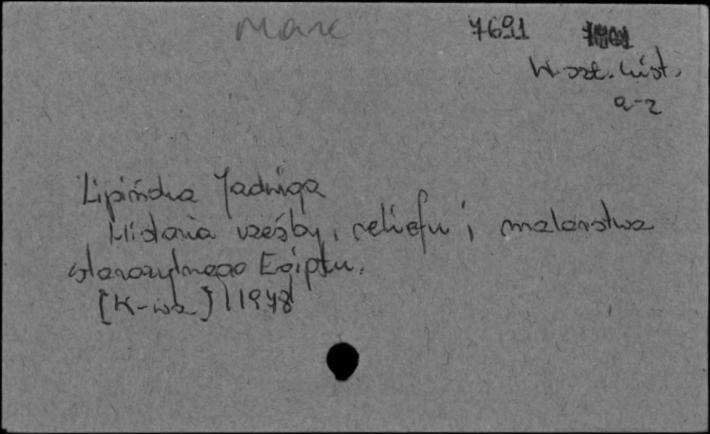 Marc 7691
W. szt. hist.
a-z
Lipińska Jadwiga
Historia rzeźby, reliefu i malarstwa
starożytnego Egiptu.
[K-wa] 1978